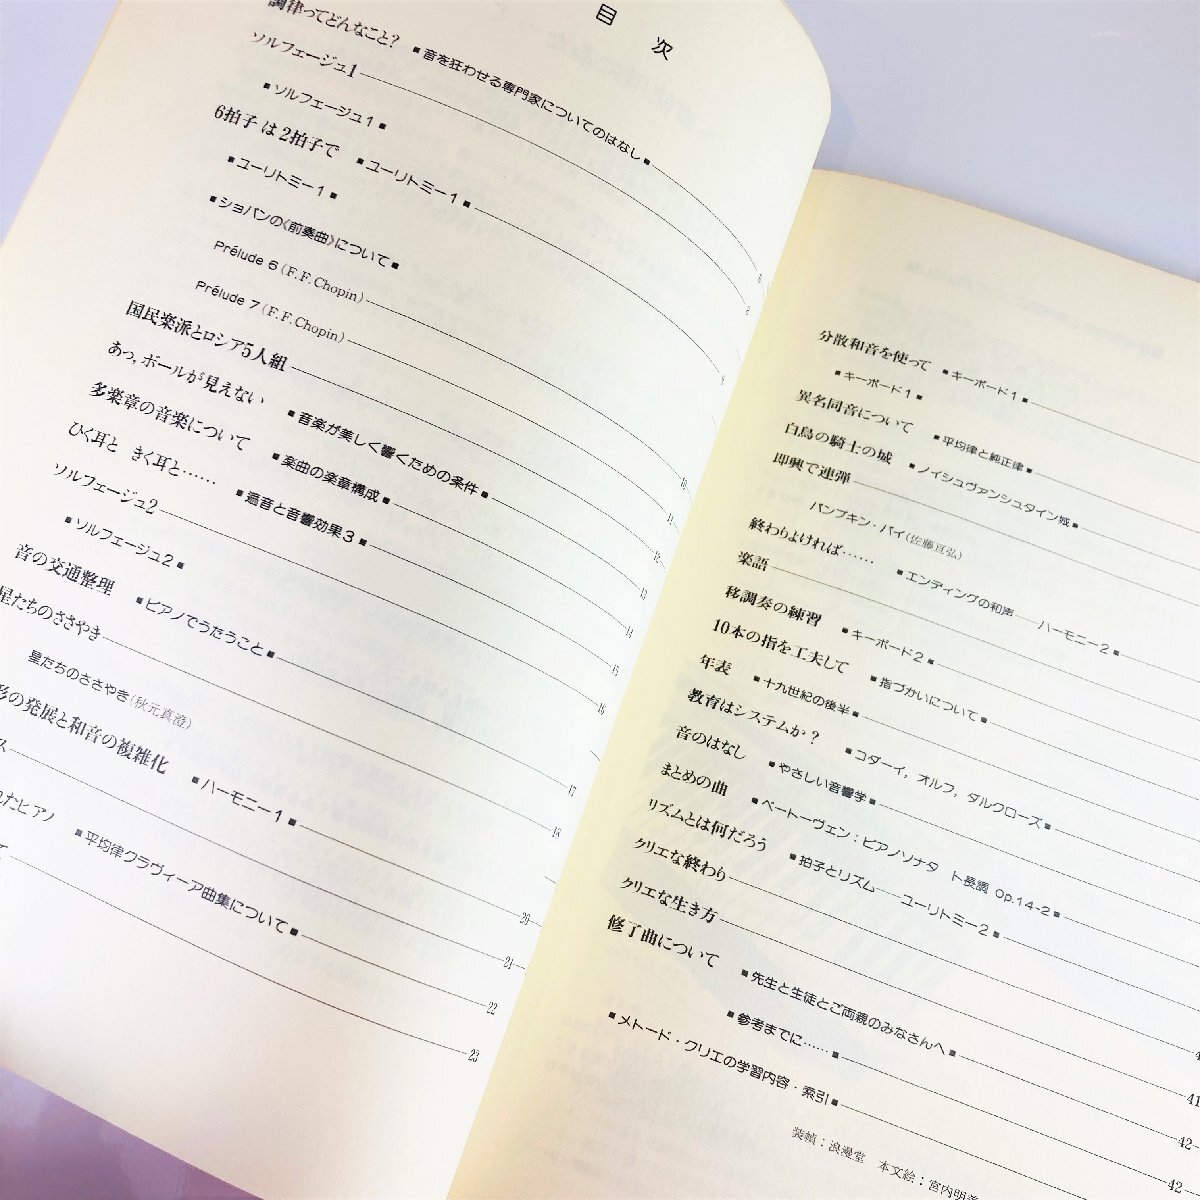 目次
調律ってどんなこと? ■音を狂わせる専門家についてのはなし■ 6
ソルフェージュ1 8
■ソルフェージュ1■
6拍子は2拍子で ■ユーリトミー1■ 9
■ユーリトミー1■
■ショパンの《前奏曲》について■
Prélude 6 (F.F.Chopin) 10
Prélude 7 (F.F.Chopin) 11
国民楽派とロシア5人組 12
あっ,ボールが見えない ■音楽が美しく響くための条件■ 13
多楽章の音楽について ■楽曲の楽章構成■ 14
ひく耳と きく耳と…… ■遁音と音響効果3■ 15
ソルフェージュ2 16
■ソルフェージュ2■
音の交通整理 ■ピアノでうたうこと■ 17
星たちのささやき 18
星たちのささやき(秋元真澄)
形の発展と和音の複雑化 ■ハーモニー1■ 20
ス 21
れたピアノ ■平均律クラヴィーア曲集について■ 22
て 23
分散和音を使って ■キーボード1■
■キーボード1■
異名同音について ■平均律と純正律■
白鳥の騎士の城 ■ノイシュヴァンシュタイン城■
即興で連弾
パンプキン・パイ(佐藤亘弘)
終わりよければ…… ■エンディングの和声——ハーモニー2■
楽語
移調奏の練習 ■キーボード2■
10本の指を工夫して ■指づかいについて■
年表 ■十九世紀の後半■
教育はシステムか? ■コダーイ,オルフ,ダルクローズ■
音のはなし ■やさしい音響学■
まとめの曲 ■ベートーヴェン:ピアノソナタ ト長調 Op.14-2■
リズムとは何だろう ■拍子とリズム——ユーリトミー2■
クリエな終わり
クリエな生き方
修了曲について ■先生と生徒とご両親のみなさんへ■ 41
■参考までに……■ 42
■メトード・クリエの学習内容・索引■ 42
装幀:浪漫堂 本文絵:宮内明